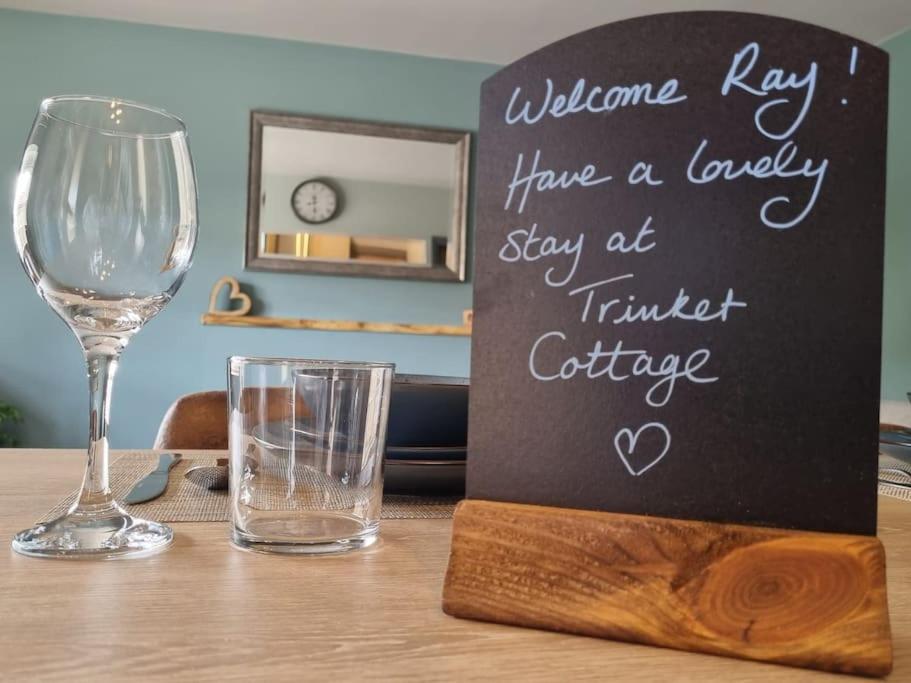 Welcome Ray!
Have a lovely
stay at
Trinket
Cottage